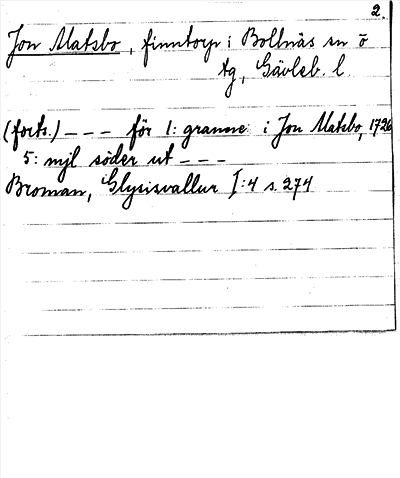 2.
Jon Matsbo, finntorp i Bollnäs sn ö
tg, Gävleb. l.
(forts.) --- för 1: granne i Jon Matsbo, 1726
5: mjl söder ut ---
Broman, Glysisvallur I:4 s. 274